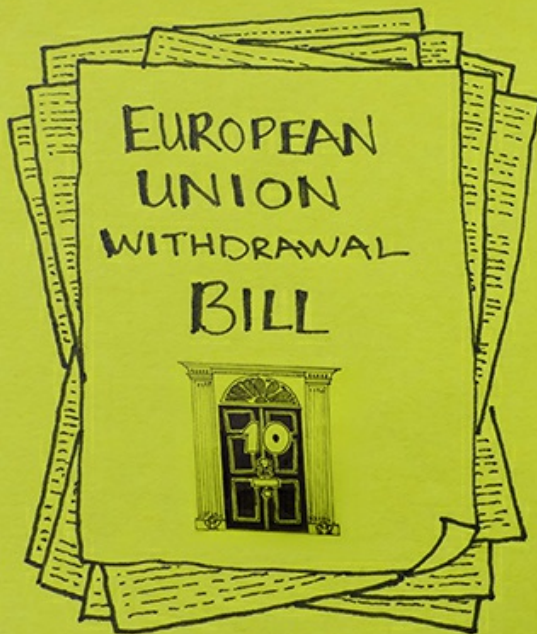 EUROPEAN
UNION
WITHDRAWAL
BILL
10